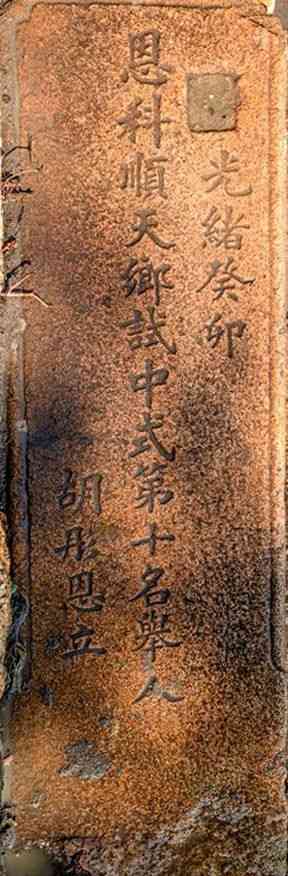 光緒癸卯
恩科順天鄉試中式第十名舉人
胡彤恩立